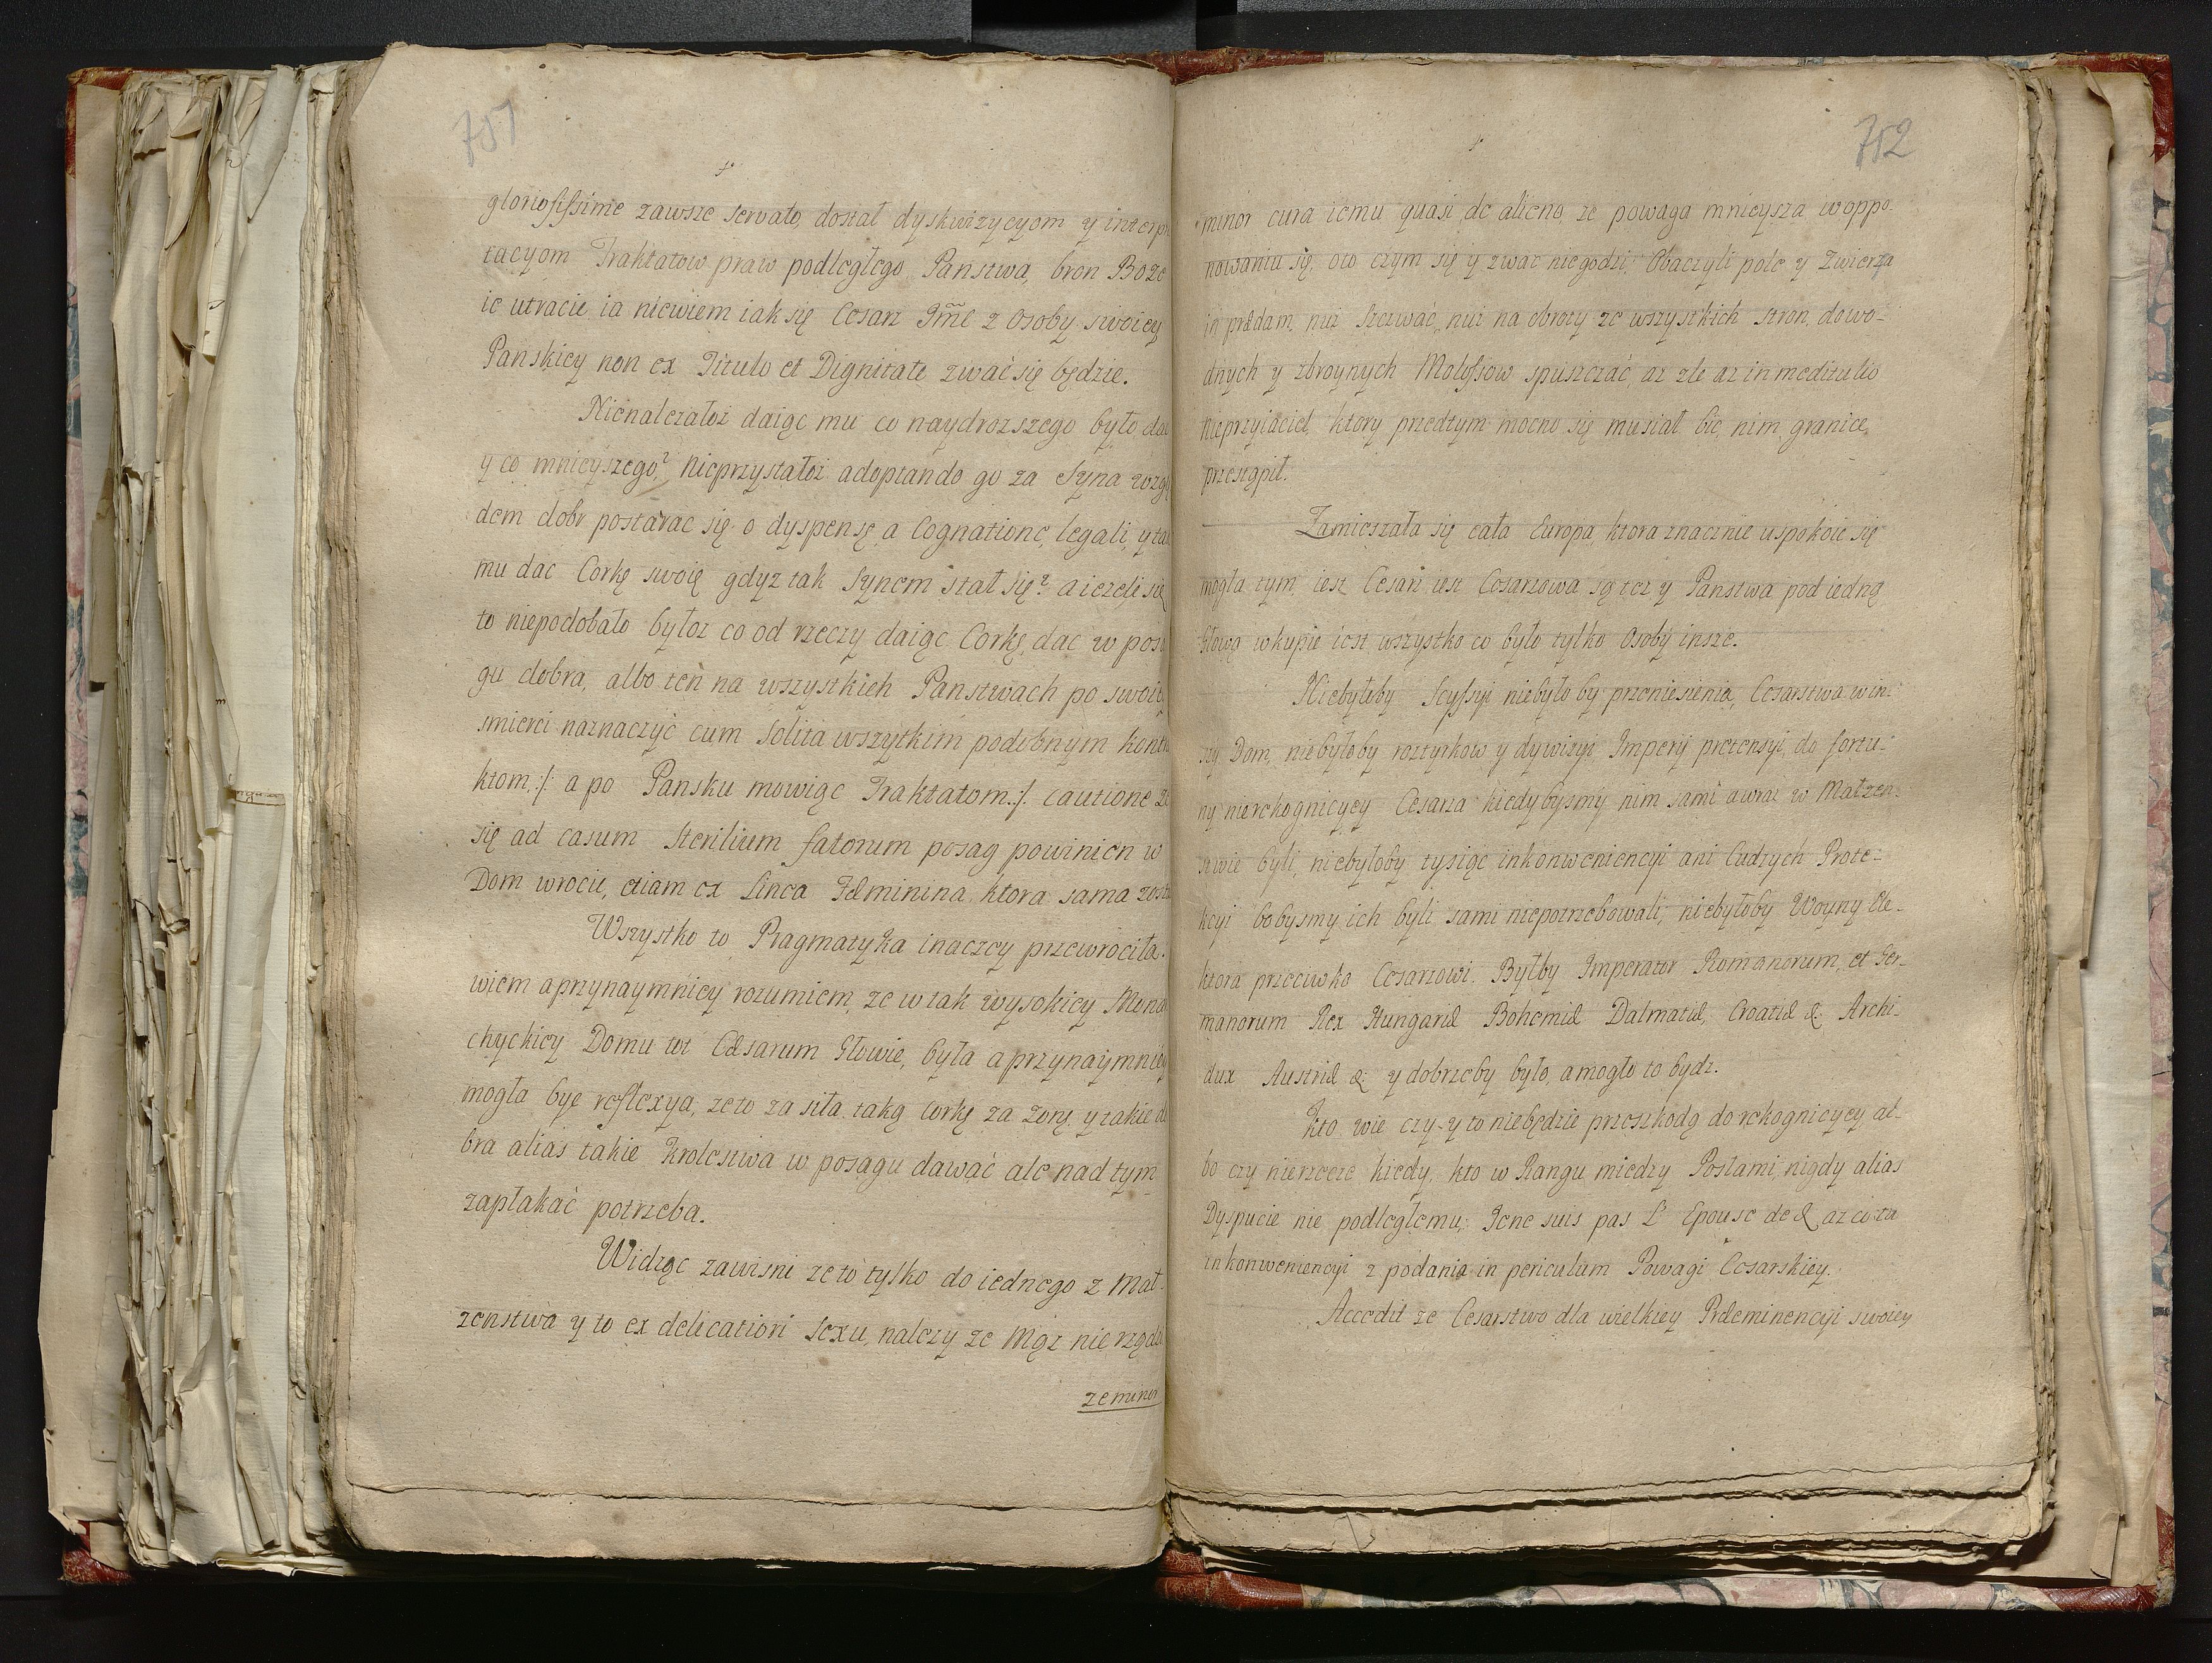 751
gloriosissime zawsze servato, dostał dyskwizycyom y interp
tacyom Traktatow praw podległego Panstwa, bron Boze
ie utracic ia niewiem iak się Cesarz Jmc z Osoby swoicy
Panskicy non ex Titulo et Dignitate zwać się będzie.
Nienalezałoz daiąc mu co naydrozszego było dac
y co mnieyszego? Nieprzystałoz adoptando go za Syna wzgl
dem dobr postarac się o dyspensę a Cognatione legali, y ta
mu dac Corkę swoię gdyz tak Synem stał się? a iezeli się
to niepodobało byłoz co od rzeczy daiąc Corkę, dac w posa
gu dobra, albo ten na wszystkich Panstwach po swoiey
smierci naznaczyć cum solita wszytkim podobnym kontra
ktom, :/: a po Pansku mowiąc Traktatom :/: cautione ze
się ad casum sterilium fatorum posag powinien w
Dom wrocic, etiam ex Linea Fæminina, ktora sama zosta
Wszystko to Pragmatyka inaczey przewrociła.
wiem a przynaymniey rozumiem, ze w tak wysokiey Mona
chyckiey Domu tot Cæsarum Głowie, była a przynaymniey
mogła byc reflexya, ze to za siła taką Corkę za zonę y takie do
bra alias takie Krolestwa w posagu dawać ale nad tym
zapłakać potrzeba.
Widząc zawisni ze to tylko do iednego z Mał-
zenstwa y to ex delicatiori Sexu, nalezy ze Mąz nie rządz
ze minor
752
minor cura iemu quasi de alieno, ze powaga mnieysza w oppo-
nowaniu się, oto czym się y zwac niegodzi. Obaczyli pole y Zwierza
in prædam, nuz szczwać, nuz na obroty ze wszystkich stron, dowo-
dnych y zbroynych Molossow spuszczać, az zle az in meditulio
Nieprzyiaciel, ktory przedtym mocno się musiał bic, nim granice
przestąpił.
Zamieszała się cała Europa, ktora znacznie uspokoic się
mogła tym, iest Cesarz iest Cesarzowa są tez y Panstwa pod iedną
Głową wkupie iest wszystko co było tylko Osoby insze.
Niebyłoby Scyssyi niebyłoby przeniesienia, Cesarstwa w in-
szy Dom, niebyłoby roztyrkow y dywizyi Imperij pretensyi, do fortu-
ny nierekognicyey Cesarza kiedybysmy nim sami a wraz w Małzen-
stwie byli, niebyłoby tysiąc inkonweniencyi ani Cudzych Prote-
kcyi bobysmy ich byli sami niepotrzebowali, niebyłoby Woyny Ele-
ktora przeciwko Cesarzowi. Byłby Imperator Romanorum, et Ger-
manorum Rex Hungariæ Bohemiæ Dalmatiæ, Croatiæ & Archi-
dux Austriæ & y dobrzeby było, a mogło to bydz.
Kto wie czy y to niebędzie przeszkodą do rekognicyey, al-
bo czy nierzecze kiedy, kto w Rangu miedzy Posłami, nigdy alias
Dyspucie nie podległemu: Je ne suis pas L Epouse de & az co ta
inkonweniencyi z podania in periculum Powagi Cesarskiey.
Accedit ze Cesarstwo dla wielkiey Præeminencyi swoiey